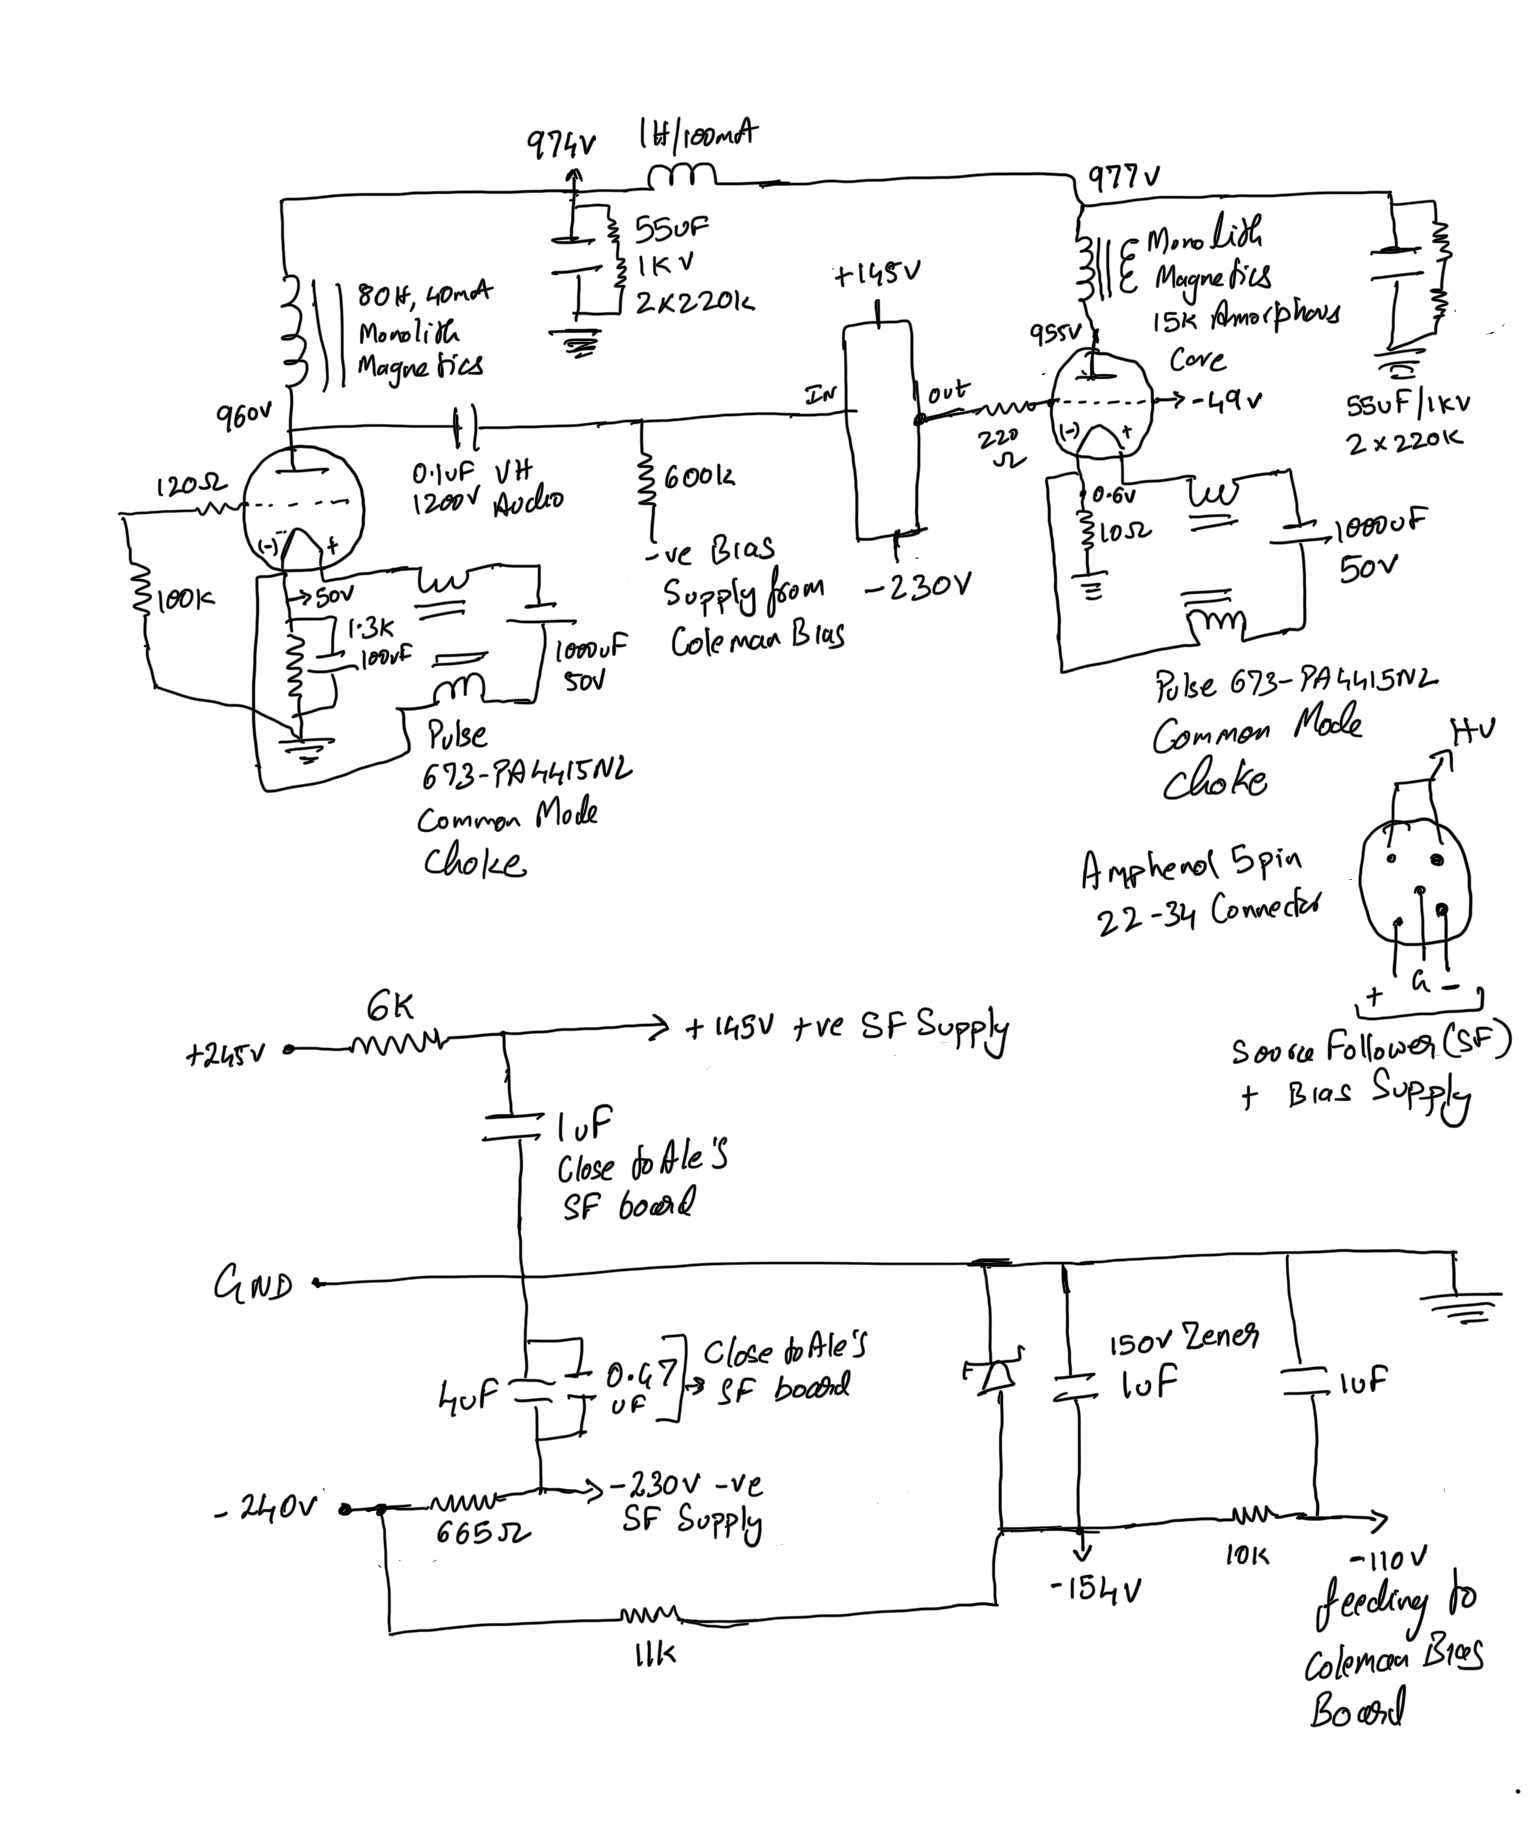 974V
1H/100mA
977V
55uF
1KV
2X220K
80H, 40mA
Monolith
Magnetics
+145V
Monolith
Magnetics
15K Amorphous
Core
955V
960V
In
out
-49V
55uF/1KV
2 x 220K
220
Ω
(-) +
120Ω
0.1uF VH
1200V Audio
600k
-ve Bias
Supply from
Coleman Bias
-230V
0.6V
10Ω
1000uF
50V
(-) +
50V
100K
1.3K
100uF
1000uF
50V
Pulse
673-PA4415NL
Common Mode
Choke
Pulse 673-PA4415NL
Common Mode
Choke
HV
Amphenol 5pin
22-34 Connector
+ G -
Source Follower (SF)
+ Bias Supply
6K
+245V
+145V +ve SF Supply
1uF
Close to Ale's
SF board
GND
4uF
0.47
uF
Close to Ale's
SF board
150V Zener
1uF
1uF
-240V
665Ω
-230V -ve
SF Supply
-154V
10K
-110V
feeding to
Coleman Bias
Board
11K